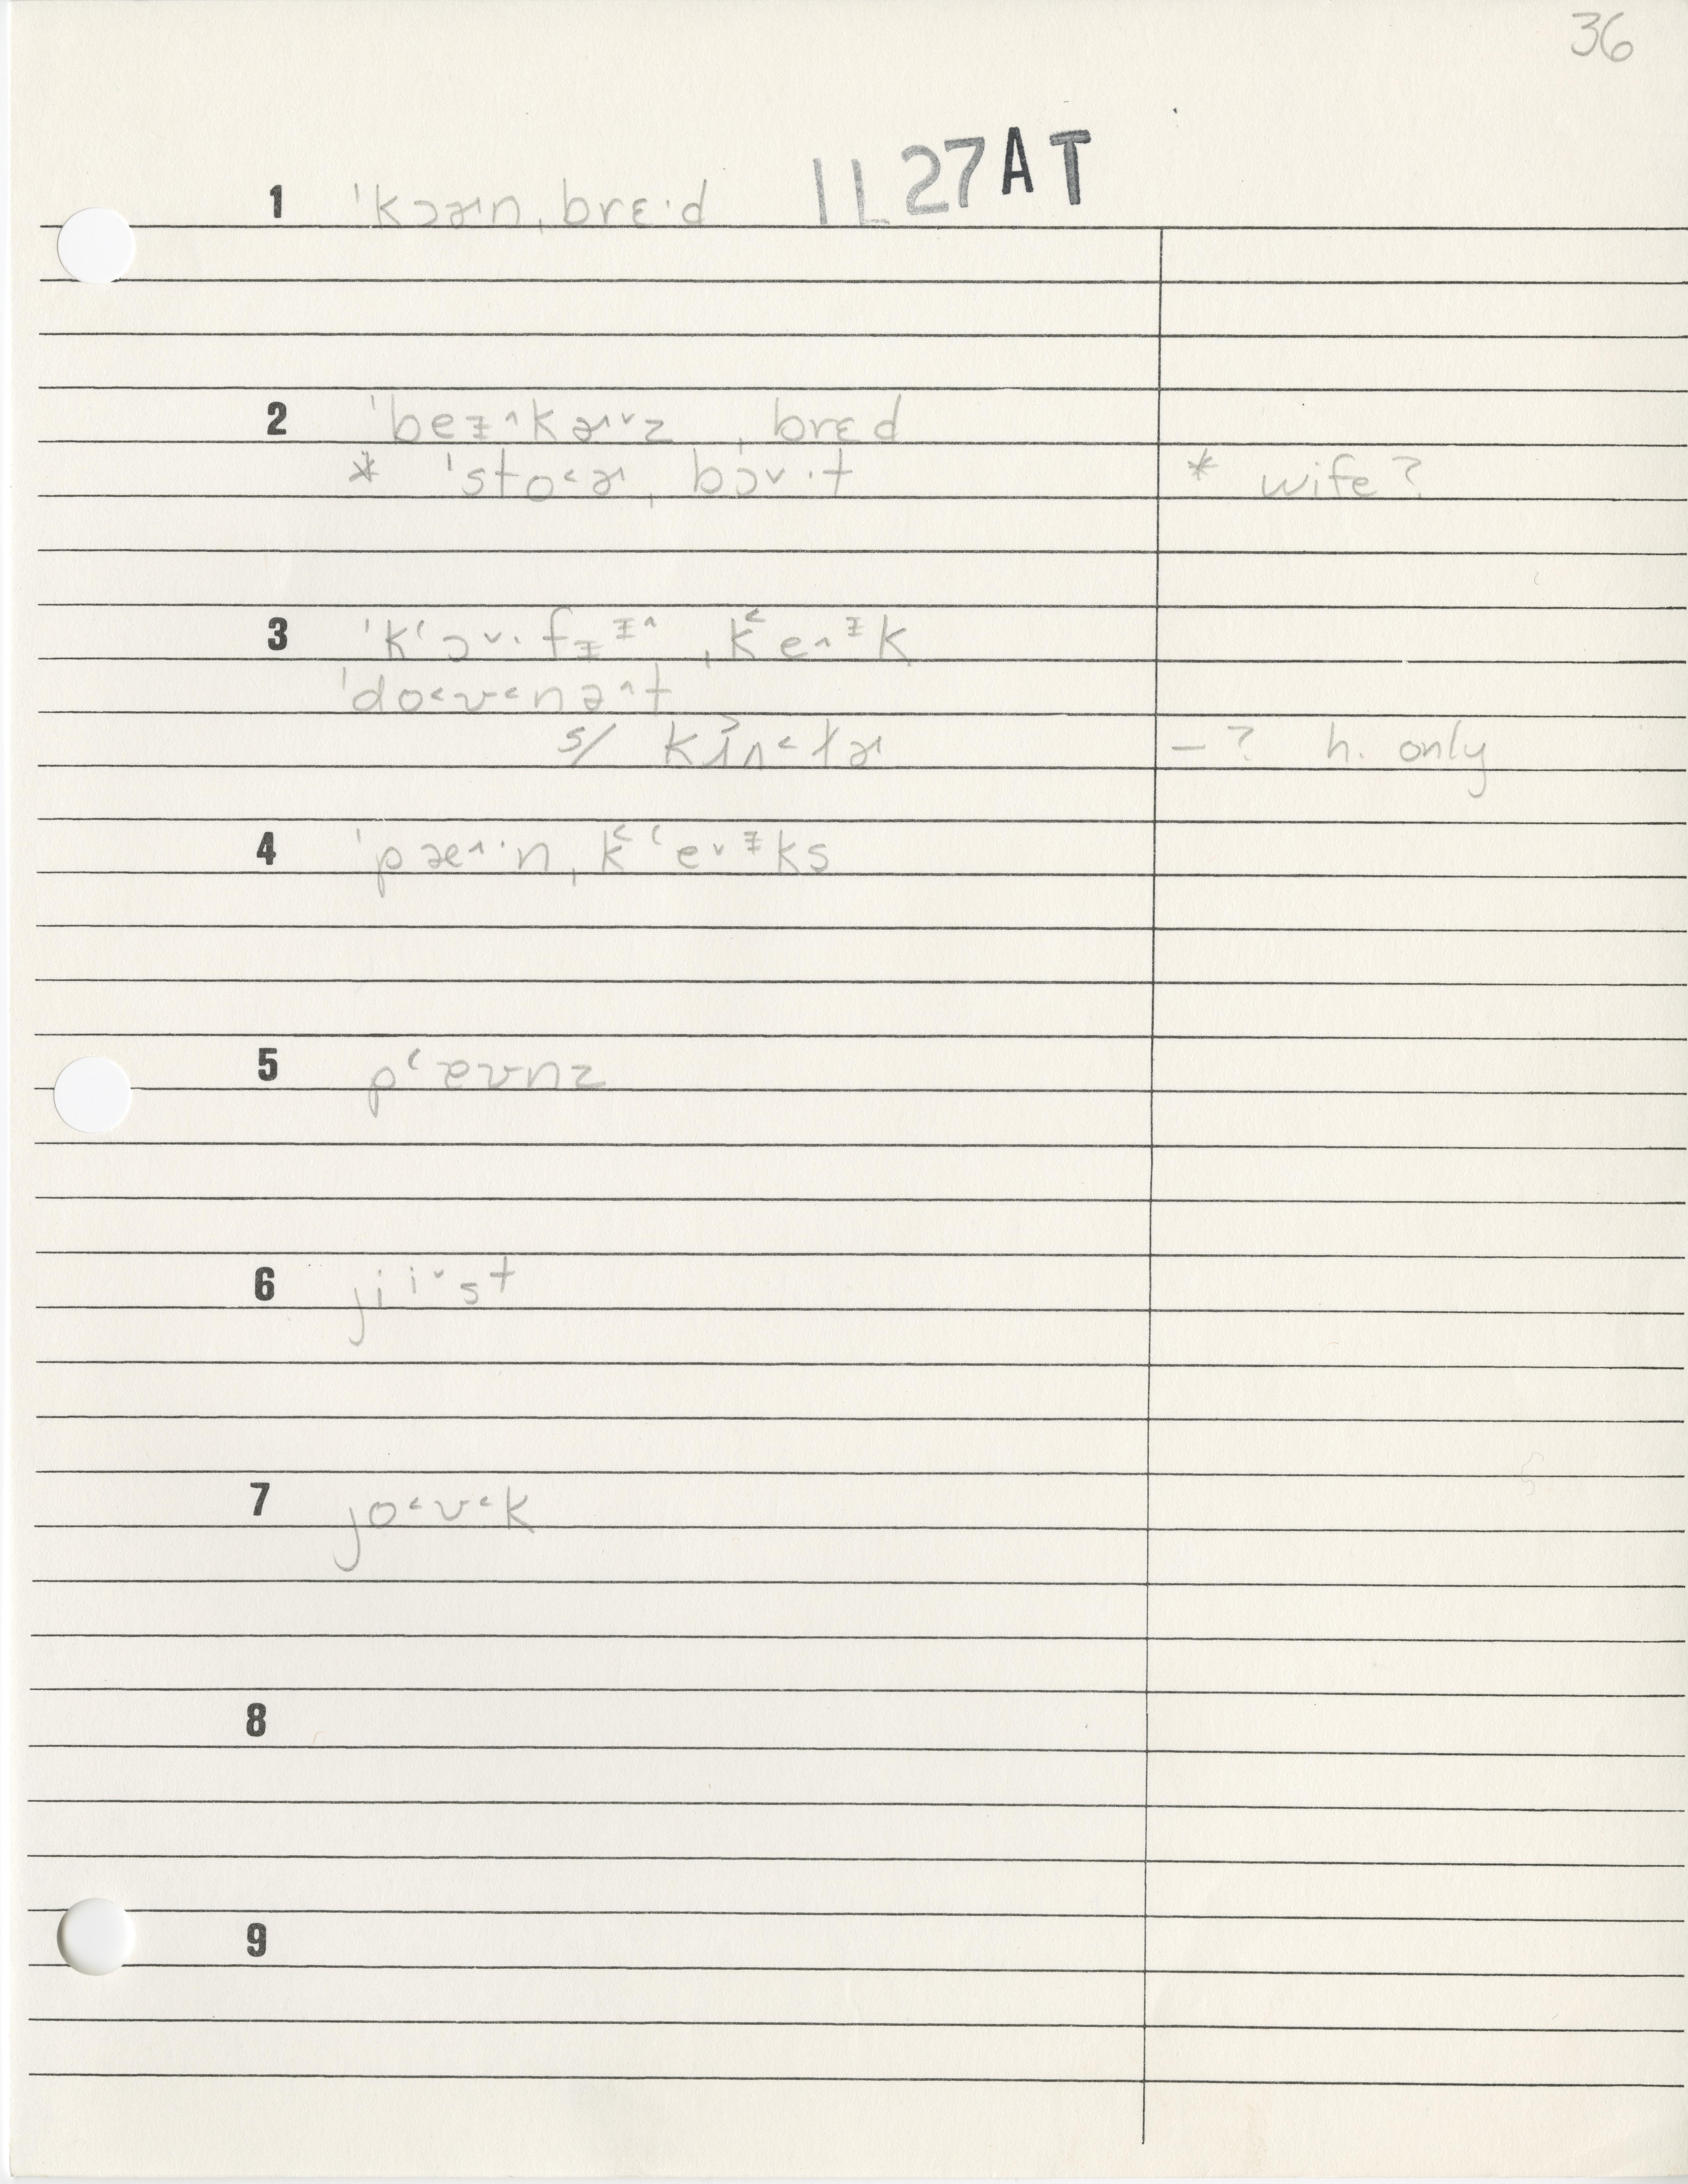 36
1 ˈkɔɚn ˌbrɛ·d IL27AT
2 ˈbeᵻ˄kɚ˅z ˌbrɛd
* ˈsto˂ɚ ˌbɔ˅·t * wife?
3 ˈkʻɔ˅·fᵻᵻ˄ ˌk˂e˄ᵻk
ˈdo˂ʊ˂nə˄t
s/ kɪ˄n˂tɚ – ? h. only
4 ˈpæ˄·n ˌk˂ʻe˅ᵻks
5 pʻæʊnz
6 jii˅st
7 jo˂ʊ˂k
8
9